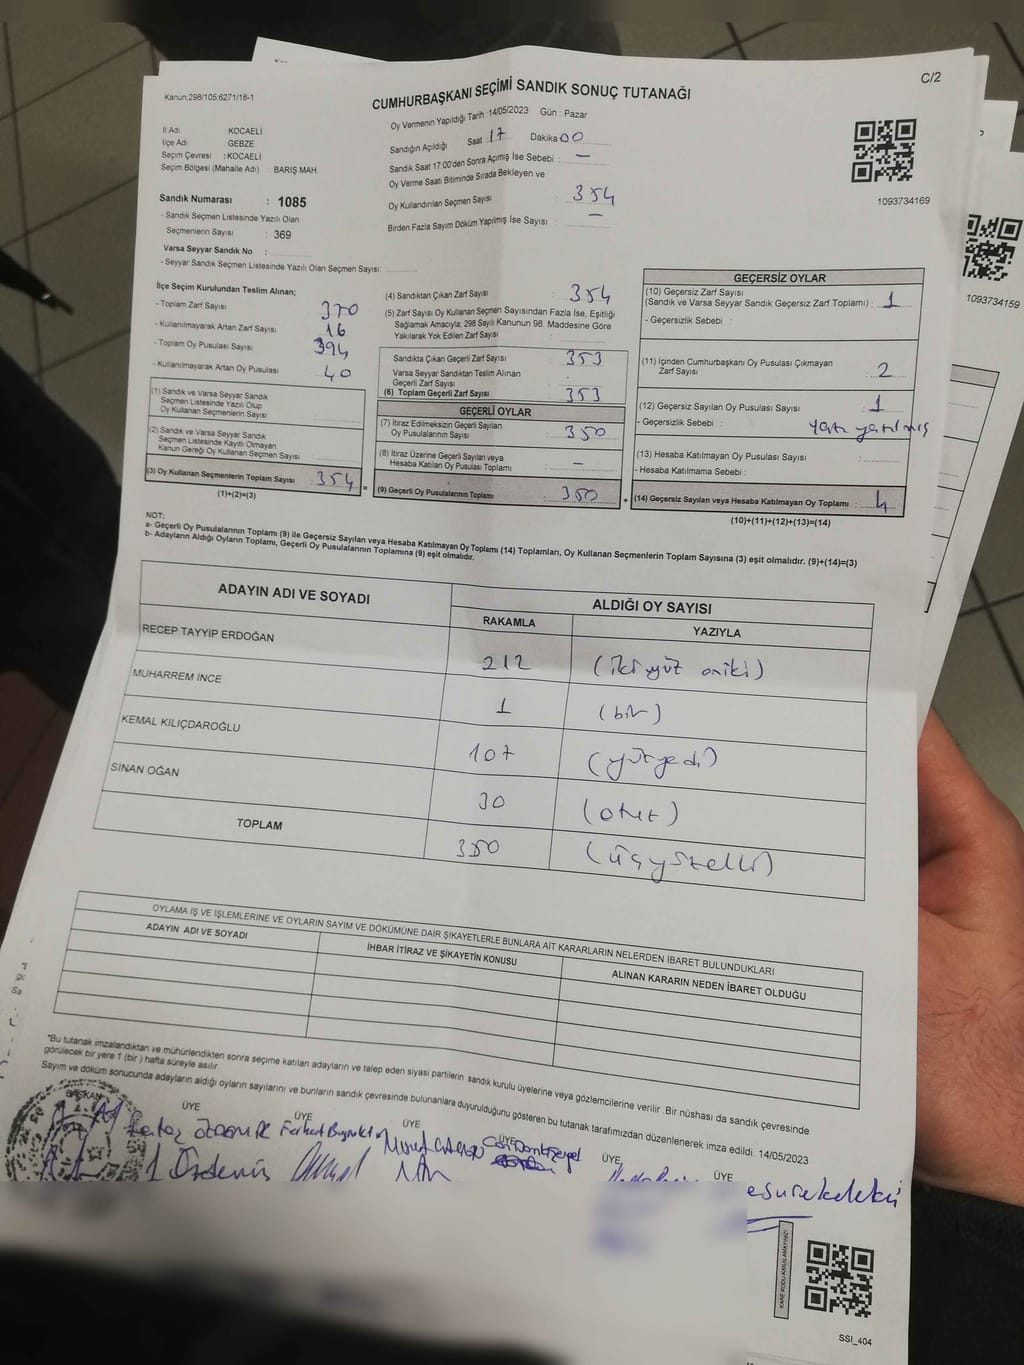 C/2
Kanun:298/105:6271/18-1
CUMHURBAŞKANI SEÇİMİ SANDIK SONUÇ TUTANAĞI
Oy Vermenin Yapıldığı Tarih :14/05/2023 Gün : Pazar
Sandığın Açıldığı Saat : 17 Dakika 00
Sandık Saat 17:00'den Sonra Açmış İse Sebebi : —
Oy Verme Saati Bitiminde Sırada Bekleyen ve
Oy Kullandırılan Seçmen Sayısı : 354
Birden Fazla Sayım Döküm Yapılmış İse Sayısı : —
İl Adı : KOCAELİ
İlçe Adı : GEBZE
Seçim Çevresi : KOCAELİ
Seçim Bölgesi (Mahalle Adı) : BARIŞ MAH.
1093734169
1093734159
Sandık Numarası : 1085
- Sandık Seçmen Listesinde Yazılı Olan
Seçmenlerin Sayısı : 369
Varsa Seyyar Sandık No :
- Seyyar Sandık Seçmen Listesinde Yazılı Olan Seçmen Sayısı:
İlçe Seçim Kurulundan Teslim Alınan;
- Toplam Zarf Sayısı 370
- Kullanılmayarak Artan Zarf Sayısı 16
- Toplam Oy Pusulası Sayısı 394
- Kullanılmayarak Artan Oy Pusulası 40
(1) Sandık ve Varsa Seyyar Sandık
Seçmen Listesinde Yazılı Olup
Oy Kullanan Seçmenlerin Sayısı :
(2) Sandık ve Varsa Seyyar Sandık
Seçmen Listesinde Kayıtlı Olmayan
Kanun Gereği Oy Kullanan Seçmen Sayısı :
(3) Oy Kullanan Seçmenlerin Toplam Sayısı : 354
(1)+(2)=(3)
=
(4) Sandıktan Çıkan Zarf Sayısı : 354
(5) Zarf Sayısı Oy Kullanan Seçmen Sayısından Fazla İse, Eşitliği
Sağlamak Amacıyla; 298 Sayılı Kanunun 98. Maddesine Göre
Yakılarak Yok Edilen Zarf Sayısı :
Sandıkta Çıkan Geçerli Zarf Sayısı : 353
Varsa Seyyar Sandıktan Teslim Alınan
Geçerli Zarf Sayısı :
(6) Toplam Geçerli Zarf Sayısı : 353
GEÇERLİ OYLAR
(7) İtiraz Edilmeksizin Geçerli Sayılan
Oy Pusulalarının Sayısı : 350
(8) İtiraz Üzerine Geçerli Sayılan veya
Hesaba Katılan Oy Pusulası Toplamı : —
(9) Geçerli Oy Pusulalarının Toplamı : 350
+
GEÇERSİZ OYLAR
(10) Geçersiz Zarf Sayısı
(Sandık ve Varsa Seyyar Sandık Geçersiz Zarf Toplamı) : 1
- Geçersizlik Sebebi :
(11) İçinden Cumhurbaşkanı Oy Pusulası Çıkmayan
Zarf Sayısı : 2
(12) Geçersiz Sayılan Oy Pusulası Sayısı : 1
- Geçersizlik Sebebi :
(13) Hesaba Katılmayan Oy Pusulası Sayısı :
- Hesaba Katılmama Sebebi :
(14) Geçersiz Sayılan veya Hesaba Katılmayan Oy Toplamı : 4
(10)+(11)+(12)+(13)=(14)
NOT:
a- Geçerli Oy Pusulalarının Toplamı (9) ile Geçersiz Sayılan veya Hesaba Katılmayan Oy Toplamı (14) Toplamları, Oy Kullanan Seçmenlerin Toplam Sayısına (3) eşit olmalıdır. (9)+(14)=(3)
b- Adayların Aldığı Oyların Toplamı, Geçerli Oy Pusulalarının Toplamına (9) eşit olmalıdır.
ADAYIN ADI VE SOYADI ALDIĞI OY SAYISI
RAKAMLA YAZIYLA
RECEP TAYYİP ERDOĞAN 212 (iki yüz oniki)
MUHARREM İNCE 1 (bir)
KEMAL KILIÇDAROĞLU 107 (yüzyedi)
SİNAN OĞAN 30 (otuz)
TOPLAM 350 (üçyüzelli)
OYLAMA İŞ VE İŞLEMLERİNE VE OYLARIN SAYIM VE DÖKÜMÜNE DAİR ŞİKAYETLERLE BUNLARA AİT KARARLARIN NELERDEN İBARET BULUNDUKLARI
ADAYIN ADI VE SOYADI İHBAR İTİRAZ VE ŞİKAYETİN KONUSU ALINAN KARARIN NEDEN İBARET OLDUĞU
*Bu tutanak imzalandıktan ve mühürlendikten sonra seçime katılan adayların ve talep eden siyasi partilerin sandık kurulu üyelerine veya gözlemcilerine verilir .Bir nüshası da sandık çevresinde
görülecek bir yere 1 (bir ) hafta süreyle asılır.
Sayım ve döküm sonucunda adayların aldığı oyların sayılarını ve bunların sandık çevresinde bulunanlara duyurulduğunu gösteren bu tutanak tarafımızdan düzenlenerek imza edildi. 14/05/2023
BAŞKAN ÜYE ÜYE ÜYE ÜYE ÜYE ÜYE
KARE KODU KARALAMAYINIZ!
SSİ_404